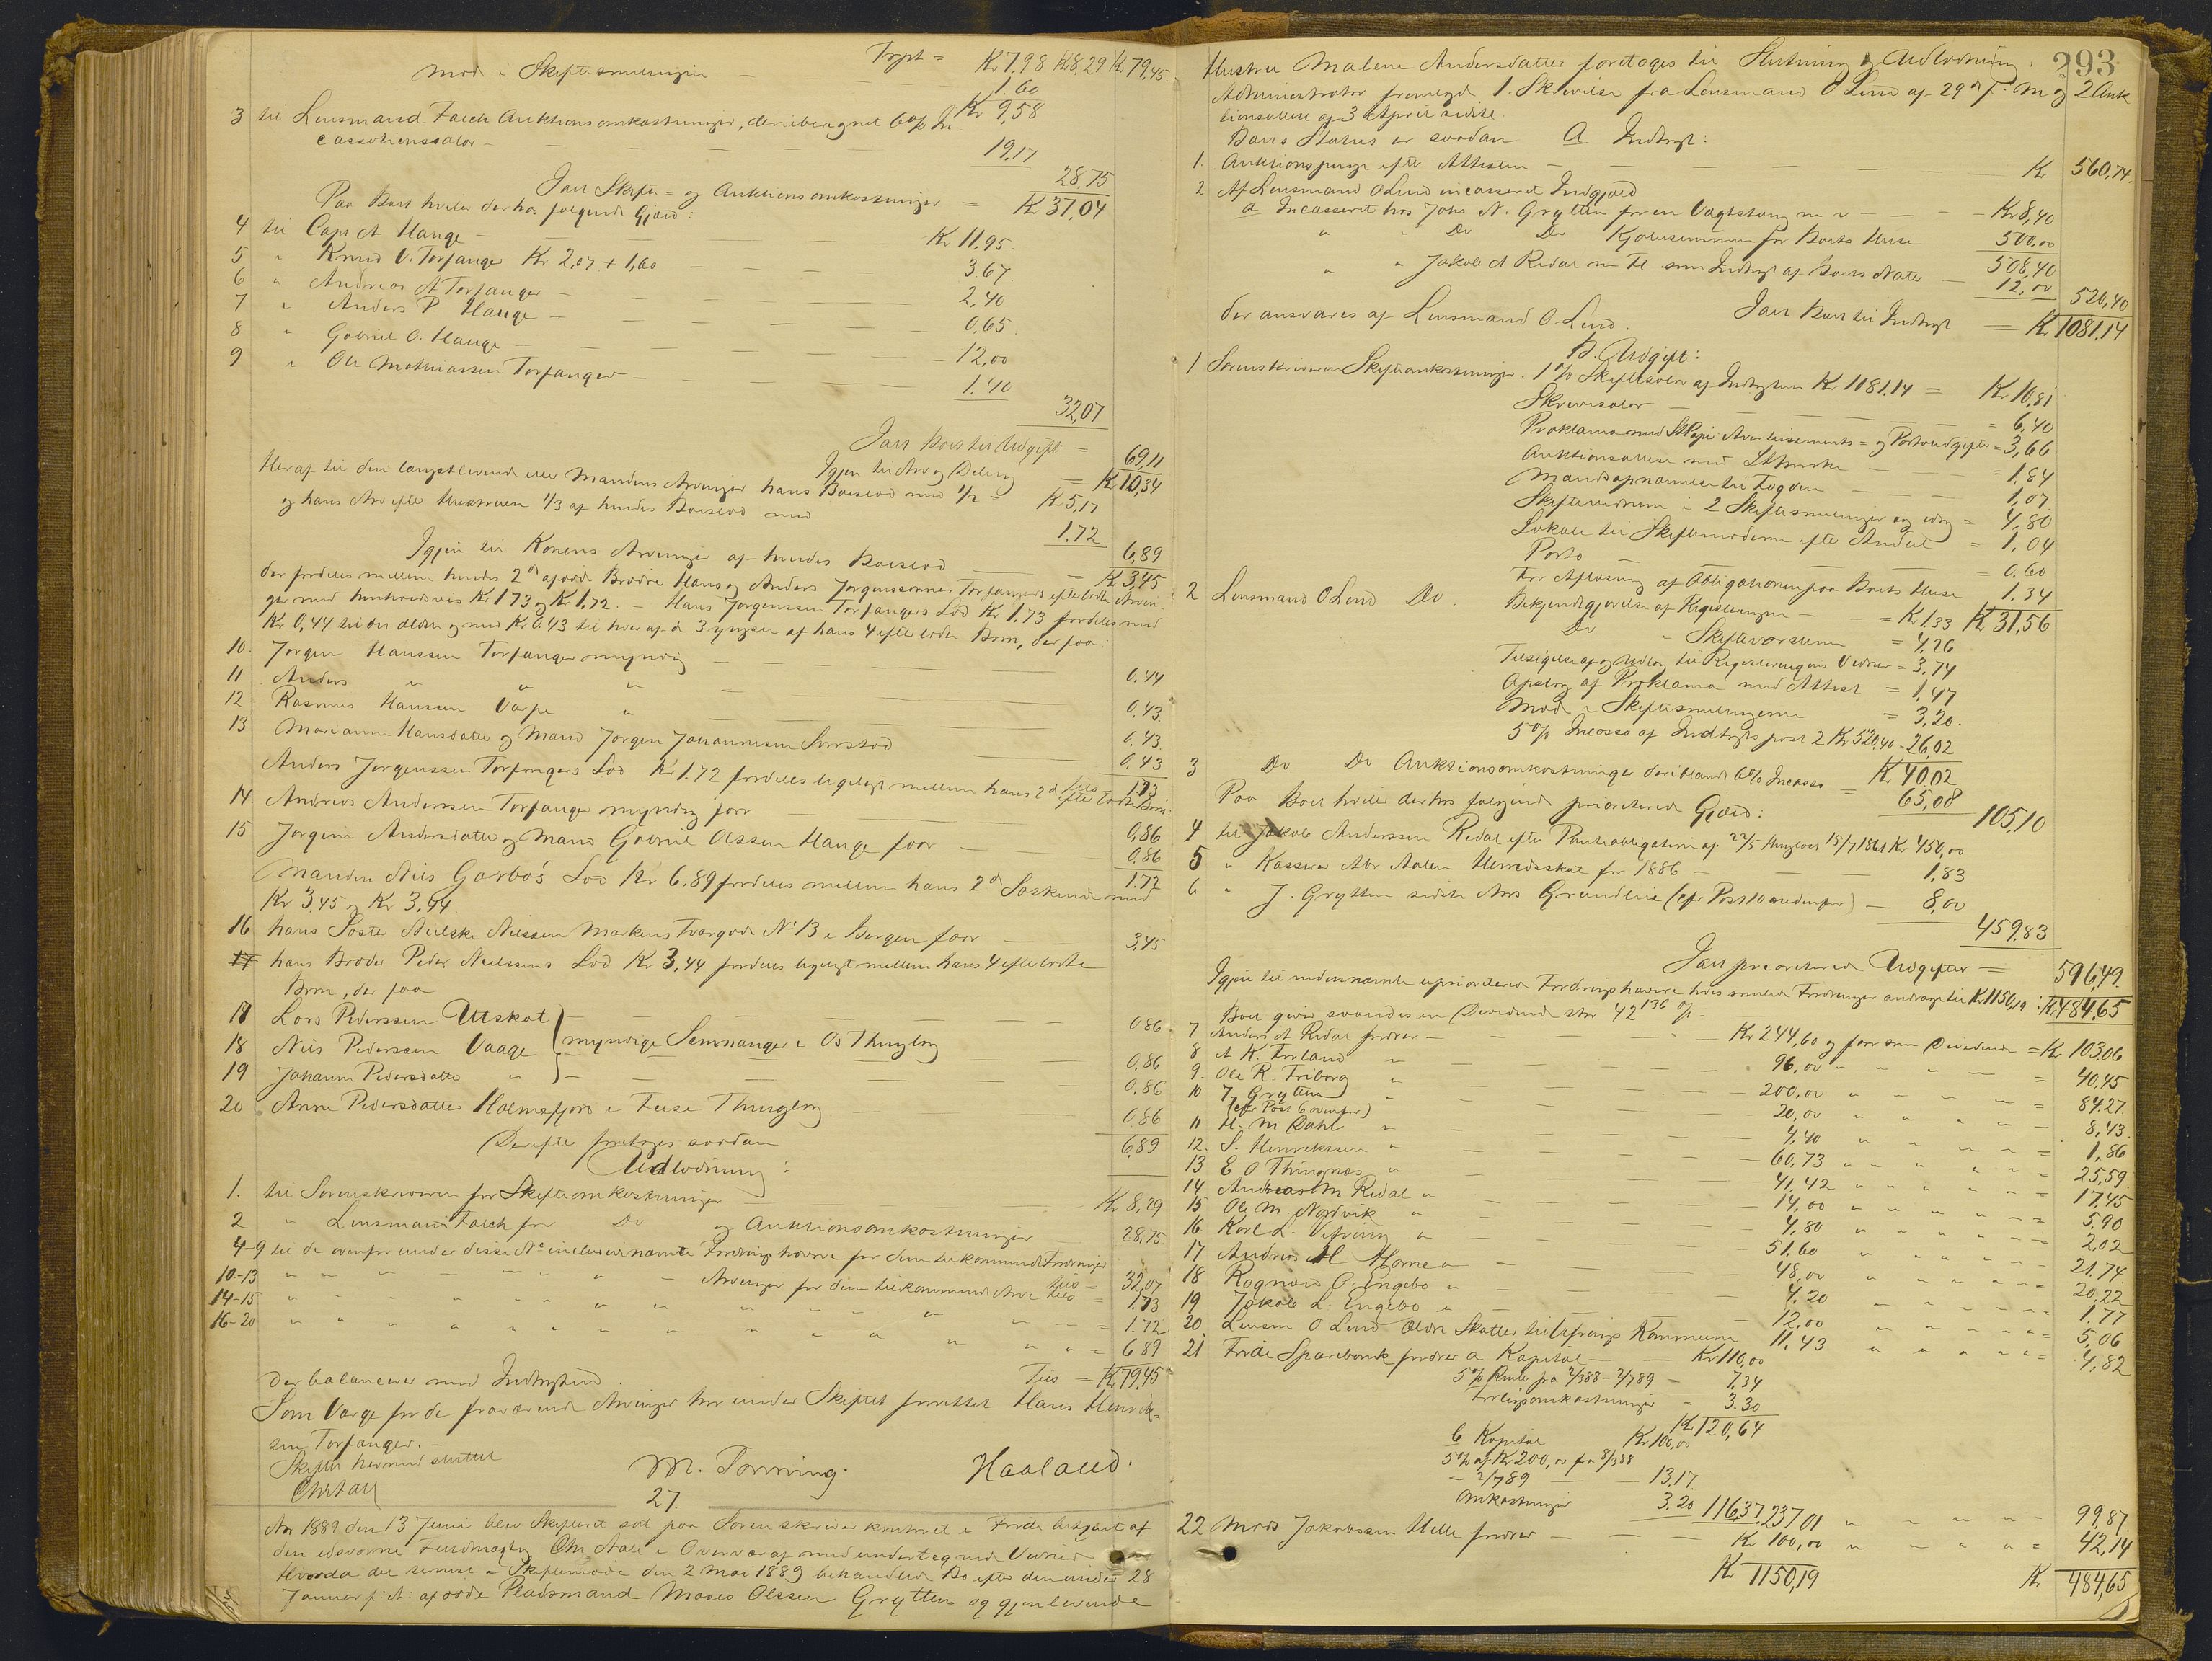 Trpt = Kr 7,98 Kr 8,29 Kr 79,45
Mode i Skiftesamlingen — — 1.60
Kr 9,58
3 til Lensmand Falch Auktionsomkostninger, deriberegnet 6 % In-
cassationssalær — — — — 19,17
28,75
Jalt Skifte- og Auktionsomkostninger = Kr 37,04
Paa Boet hviler derhos følgende Gjæld:
4 til Capt A Hauge — — — Kr 11.95.
5 " Knud O. Torfanger Kr 2,07 + 1,60 — — 3,67
6 " Andreas A Torfanger — — — 2,40
7 " Anders P Hauge — — — 0,65.
8 " Gabriel O. Hauge — — — 12,00
9 " Ole Mathiassen Torfanger — — 1.40
32,07
Jalt Boets til Udgift = 69,11
Igjen til Arv og Deling — Kr 10,34
Heraf til den længstlevende eller Mandens Arvinger hans Boeslod med 1/2 = Kr 5,17
og hans Arv efter Hustruen 1/3 af hendes Boeslod med 1.72
6,89
Igjen til Konens Arvinger af hendes Boeslod — = Kr 3,45
der fordeles mellem hendes 2de afdøde Brødre Hans og Anders Jørgenssønner Torfangers efterladte Arvin-
ger med henholdsvis Kr 1.73 og Kr 1,72. — Hans Jørgenssen Torfangers Lod Kr. 1.73 fordeles med
Kr 0,44 til den ældste og med Kr 0.43 til hver af de 3 yngste af hans 4 efterladte Børn, der faa:
10. Jørgen Hanssen Torfanger myndig — — — 0,44
11 Anders " " " — — 0,43
12 Rasmus Hanssen Varpe " — — 0,43
13 Marianne Hansdatter og Mand Jørgen Johannessen Sørrstad 0,43
Tils 1.73
Anders Jørgenssen Torfangers Lod Kr 1.72 fordeles ligeligt mellem hans 2de efterladte Børn:
14 Andreas Anderssen Torfanger myndig faar — — 0,86
15 Jørgine Andersdatter og Mand Gabriel Olssen Hauge faar — 0,86
1.72
Manden Nils Garbos Lod Kr 6.89 fordeles mellem hans 2de Søskende med
Kr 3,45 og Kr 3,44.
16 hans Søster Nielske Nilssen Markens Tvørgade No 13 i Bergen faar — — 3,45
17 hans Broder Peder Nielssens Lod Kr 3,44 fordeles ligeligt mellem hans 4 efterladte
Børn, der faa
17 Lars Pederssen Utskot — — — 0,86
18 Nils Pederssen Vaage } myndige Samnanger i Os Thinglag — — 0,86
19 Johanne Pedersdatter " — — — 0,86
20 Anne Pedersdatter Holmefjord i Fuse Thinglag — — 0,86
6,89
Derefter foretoges saadan
Udlodning:
1. til Sorenskriveren for Skifteomkostninger — — Kr 8,29
2 " Lensmand Falch for Do og Auktionsomkostninger — 28,75
4-9 til de ovenfor under disse No inclusive nævnte Fordringshavere for dem tilkommende Fordringer tils = 32,07
10-13 " " " " " " " — Arvinger for dem tilkommende Arv tils = 1.73
14-15 " " " " " " " " " " " = 1.72
16-20 " " " " " " " " " " " = 6,89
Tils = Kr 79,45
der balancerer med Indtægten.
Som Værge for de fraværende Arvinger har under Skiftet forrettet Hans Henrik-
sen Torfanger. —
Skiftet hermed sluttet
Chr Aall M. Tønning. Haaland.
27.
Aar 1889 den 13 Juni blev Skifteret sat paa Sorenskriverkontoret i Førde betjent af
den edsvorne Fuldmægtig Chr Aall i Overvær af medundertegnede Vidner
Hvorda det senest i Skiftemøde den 2 Mai 1889 behandlede Bo efter den under 28
Januar f: A: afdøde Pladsmand Moses Olssen Grytten og gjenlevende
293
Hustru Malene Andersdatter foretoges til Slutning & Udlodning.
Administrator fremlagde 1. Skrivelse fra Lensmand O Lund af 29de f. M og 2 Auk
tionsattest af 3 April sidste.
Boets Status er saadan A Indtægt:
1. Auktionspenge efter Attesten — — — Kr 560,74.
2 Af Lensmand O Lund incasseret Indgjæld
a Incasseret hos Johs N. Grytten for en Vægtstang m v — — Kr 8,40
" " Do Do Kjøbesummen for Boets Huse 500,00
508,40
" " Jakob A Redal m Fl som Indtægt af Boets Nøter — 12,00 520,40
der ansvares af Lensmand O. Lund. Jalt Boet til Indtægt = Kr 1081,14
B. Udgift:
1 Sorenskriveren Skifteomkostninger. 1 % Skiftesalær af Indtægten Kr 1081.14 = Kr 10,81
Skrivesalær — — — = 6,40
Proklama med St.Papir Avertissements- og Portoudgifter = 3,66
Auktionsattest med Stbmrke — = 1,84
Mandsopnævnelse til Lagden — — 1,07
Skiftevidnerne i 2 Skiftesamlinger og idag = 4,80
Lokale til Skiftemøderne efter Andel = 1,04
Porto — — — = 0,60
For Aflæsning af Obligationen paa Boets Huse 1.34
Kr 31,56
2 Lensmand O Lund Do. Bekjendtgjørelse af Registeringen — = Kr 1.33
Do " Skiftevarslerne = 4,26
Tilsigelse af og Udlæg til Registeringens Vidner = 3,74
Opslag af Proklama med Attest = 1,47
Mode i Skiftesamlingerne = 3,20.
5 % Incasso af Indtægts post 2 Kr 520,40 - 26,02
Kr 40,02
3 Do Do Auktionsomkostninger deriblandt 6% Incasso = 65,08
105,10
Paa Boet hviler derhos følgende prioriterede Gjæld:
4 til Jakob Anderssen Redal efter Panteobligation af 22/5 thinglæst 15/7 1861 Kr 450,00
5 " Kasserer Abr Aalen Herredsskat for 1886 — — 1,83
6 " J. Grytten sidste Aars Grundleie (cfr Post 10 nedenfor) — 8,00
459,83
Jalt prioriterede Udgifter = 596,49.
Igjen til nedennævnte uprioriterede Fordringshavere hvis samlede Fordringer andrage til Kr 1150,19 : Kr 484,65
Boet giver saaledes en Dividende stor 42 136 %
7 Anders A Redal fordrer — — — Kr 244,60 og faar som Dividende = Kr 103,06
8 A K. Førland " — — 96,00 " " " = 40,45
9. Ole R. Friborg " — — 200,00 " " " = 84.27
10 J. Grytten " — — 20,00 " " " = 8,43.
(cfr Post 6 ovenfor)
11 H. M Dahl " — — 4,40 " " " = 1,86
12. S. Henrikssen " — — 60,73 " " " = 25,59
13 E O Thingnæs " — — 41,42 " " " = 17,45
14 Andreas M Redal " — — 14,00 " " " = 5.90
15 Ole M. Nordvik " — — 4,80 " " " = 2,02
16 Karl L. Vefring " — — 51,60 " " " = 21.74
17 Andreas M Horne " — — 48,00 " " " = 20,22
18 Ragnvald O. Engebø " — — 4.20 " " " = 1.77
19 Jakob L. Engebø " — — 12.00 " " " = 5,06
20. Lensm O Lund Ældre Skatter til Vefrings Kommune 11.43 " " " = 4,82
21 Førde Sparebank fordrer a Kapital — — Kr 110,00
5 % Rente fra 2/3 88 - 2/7 89 — 7,34
Forligsomkostninger - 3.30
Kr 120,64
b Kapital Kr 100,00
5 % af Kr 200,00 fra 8/3 88
— 2/7 89 — — 13,17.
Omkostninger 3.20 116,37 237,01 " " " " 99,87.
22 Mads Jakobssen Helle fordrer — — Kr 100,00 " " " = 42,14
Kr 1150,19 Kr 484,65